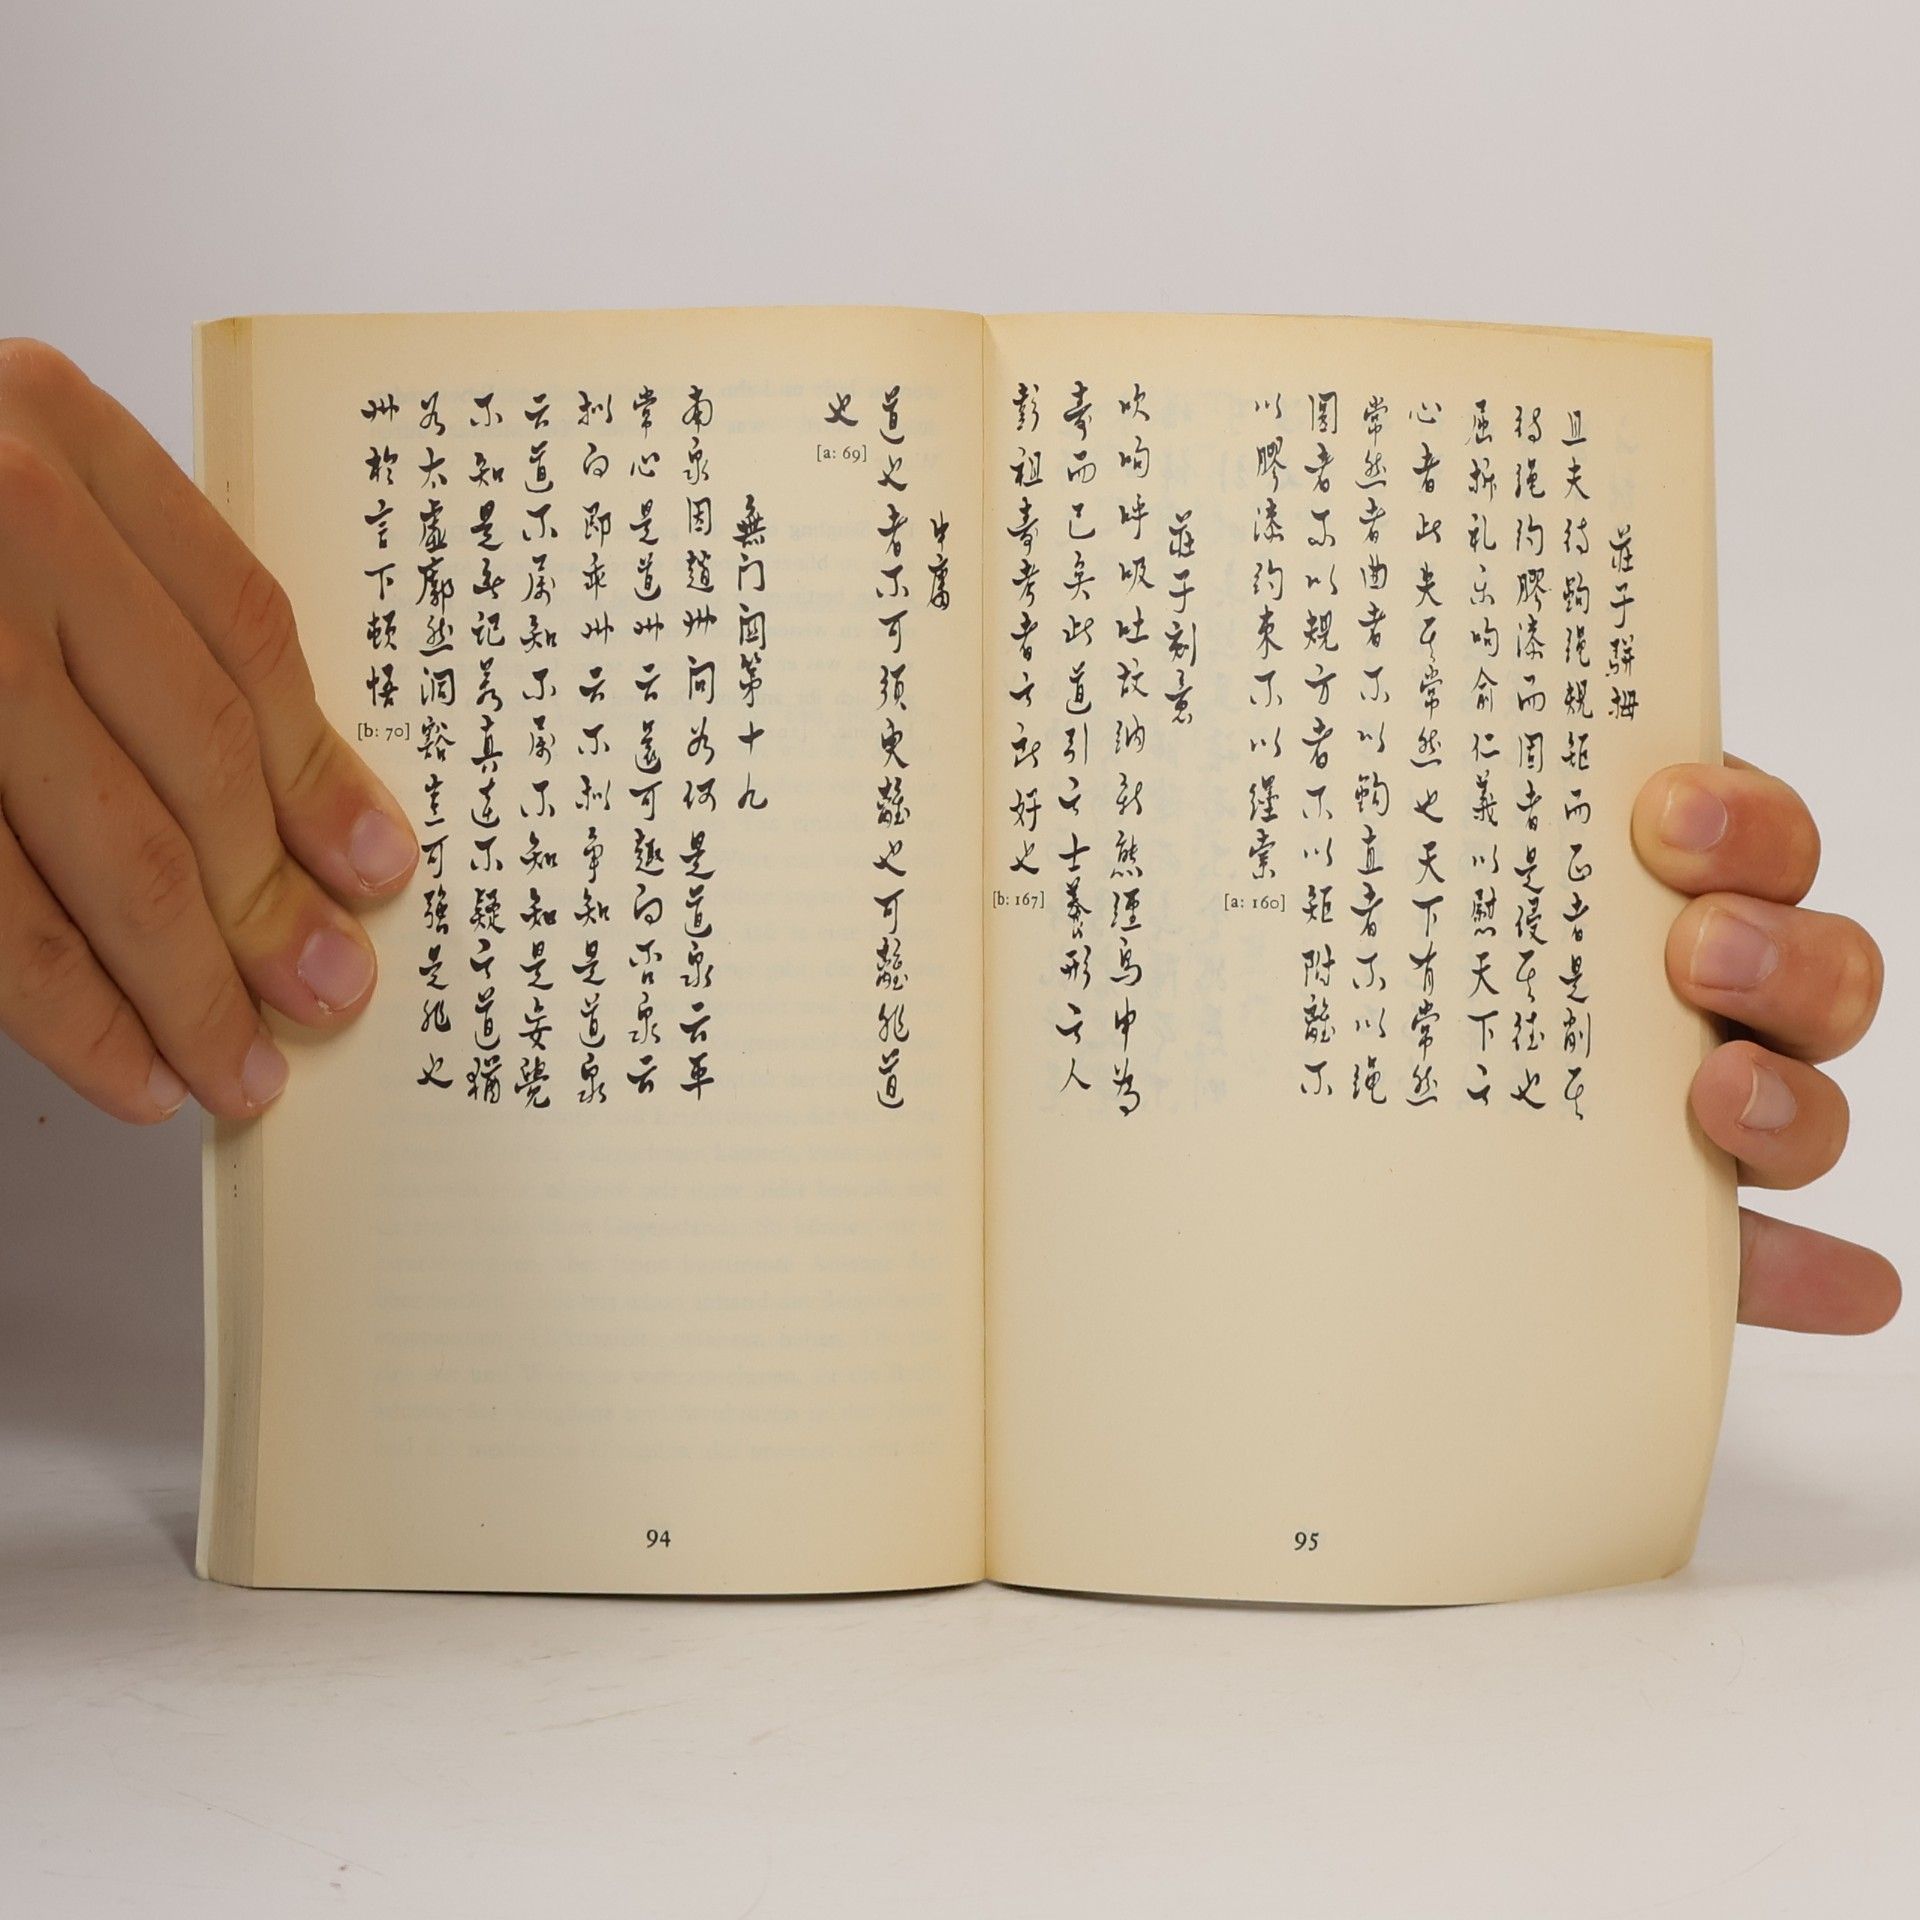 中庸
道也者不可須臾離也可離非道
也
[a: 69]
無门関第十九
南泉因趙州问如何是道泉云平
常心是道州云還可趣向否泉云
拟向即乖州云不拟爭知是道泉
云道不属知不属不知知是妄覺
不知是無记若真達不疑之道猶
如太虛廓然洞豁豈可強是非也
州於言下頓悟
[b: 70]
94
莊子駢拇
且夫待鉤绳規矩而正者是削其
待绳约膠漆而固者是侵其德也
屈折礼乐呴俞仁義以慰天下之
心者此失其常然也天下有常然
常然者曲者不以鉤直者不以绳
圓者不以規方者不以矩附離不
以膠漆约束不以纆索
[a: 160]
莊子刻意
吹呴呼吸吐故納新熊經鳥申為
壽而已矣此道引之士養形之人
彭祖壽考者之所好也
[b: 167]
95